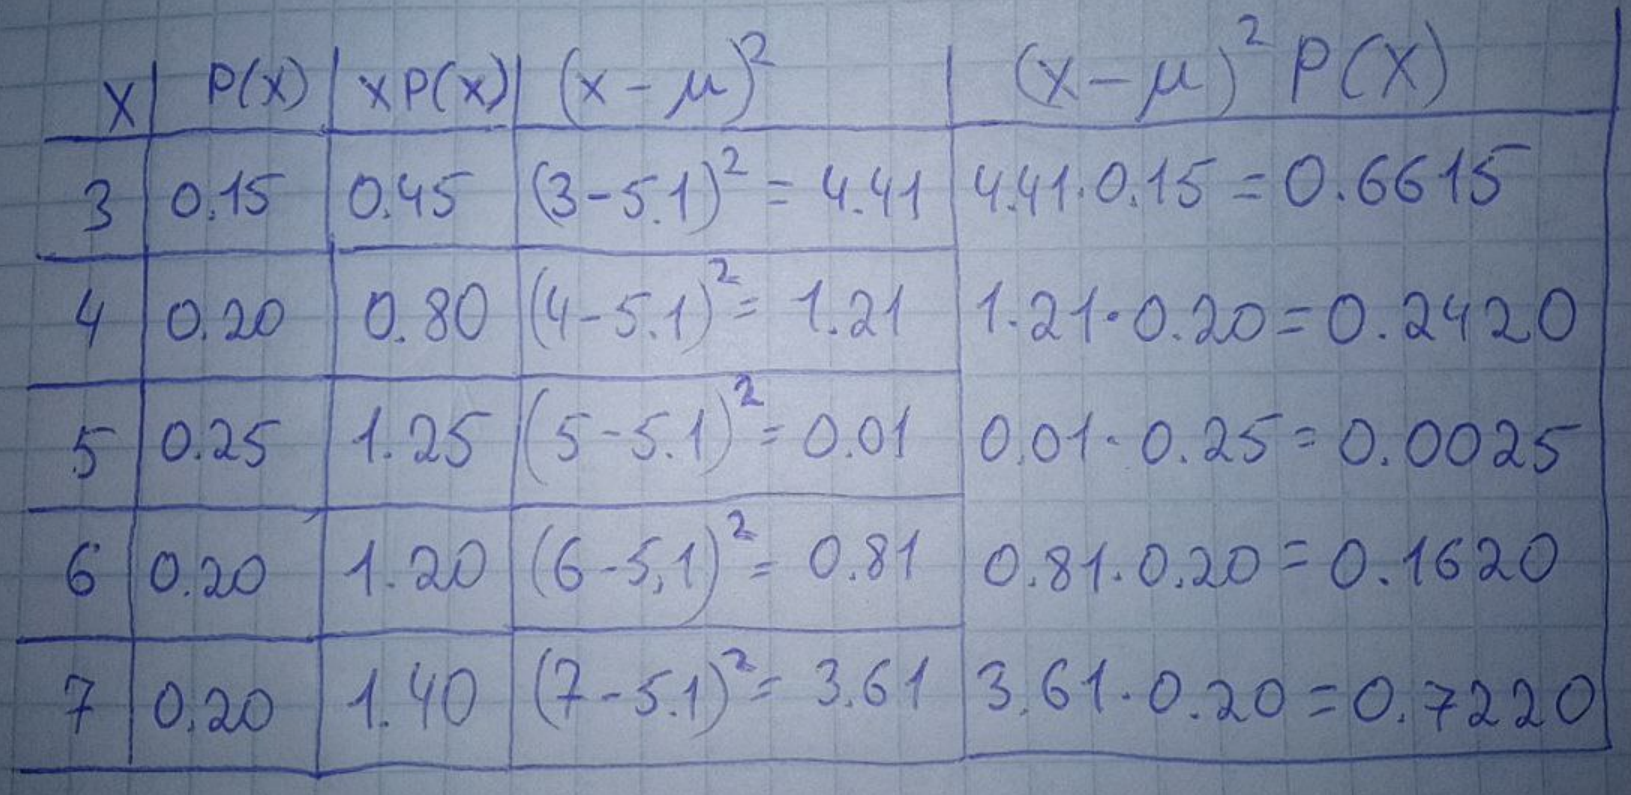 x P(x) xP(x) (x - μ)² (x - μ)² P(x)
3 0.15 0.45 (3-5.1)² = 4.41 4.41·0.15 = 0.6615
4 0.20 0.80 (4-5.1)² = 1.21 1.21·0.20 = 0.2420
5 0.25 1.25 (5-5.1)² = 0.01 0.01·0.25 = 0.0025
6 0.20 1.20 (6-5,1)² = 0.81 0.81·0.20 = 0.1620
7 0.20 1.40 (7-5.1)² = 3.61 3.61·0.20 = 0.7220